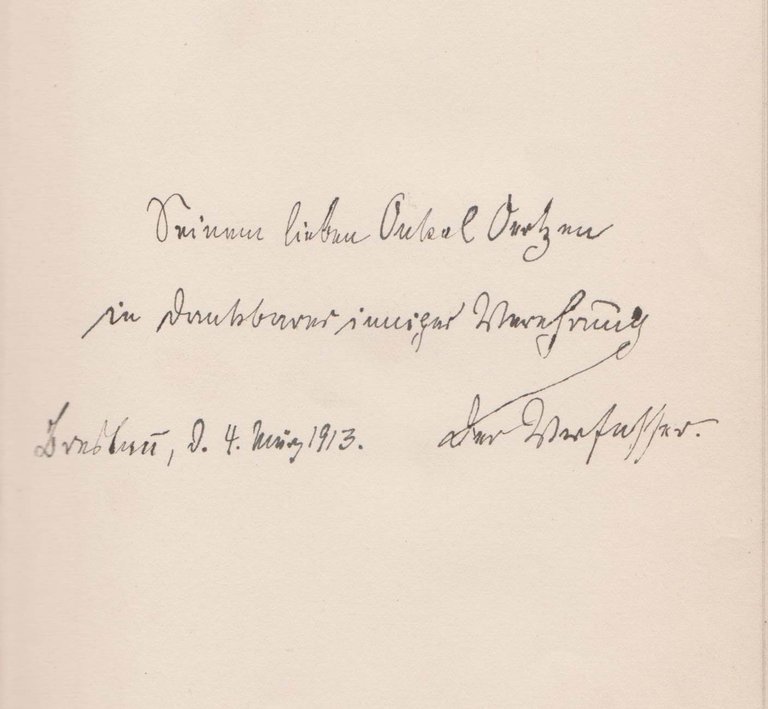 Seinem lieben Onkel Oertzen
in dankbarer inniger Verehrung
Breslau, d. 4. März 1913. Der Verfasser.